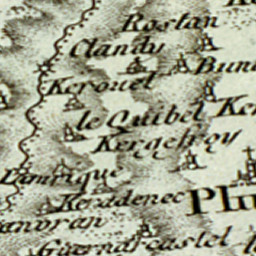 Rostan
Clandy
Kerouel
Bun
le Quibel
Ke
Kergehroy
Lanrique
Keradenec
Plu
anoran
Guernarcastel